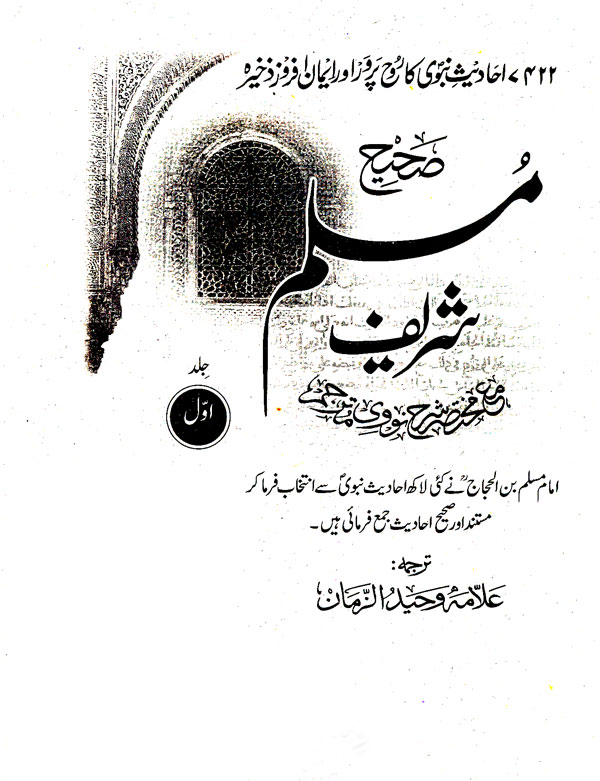 ۷۴۲۲ احادیثِ نبویؐ کا رُوح پرور اور ایمان افروز ذخیرہ
صَحِیْح
مُسلم
شریف
مع مختصر شرح نووی مترجم
جلد
اوّل
امام مسلم بن الحجاجؒ نے کئی لاکھ احادیث نبویؐ سے انتخاب فرما کر
مستند اور صحیح احادیث جمع فرمائی ہیں۔
ترجمہ:
علّامہ وحیدُ الزّمان